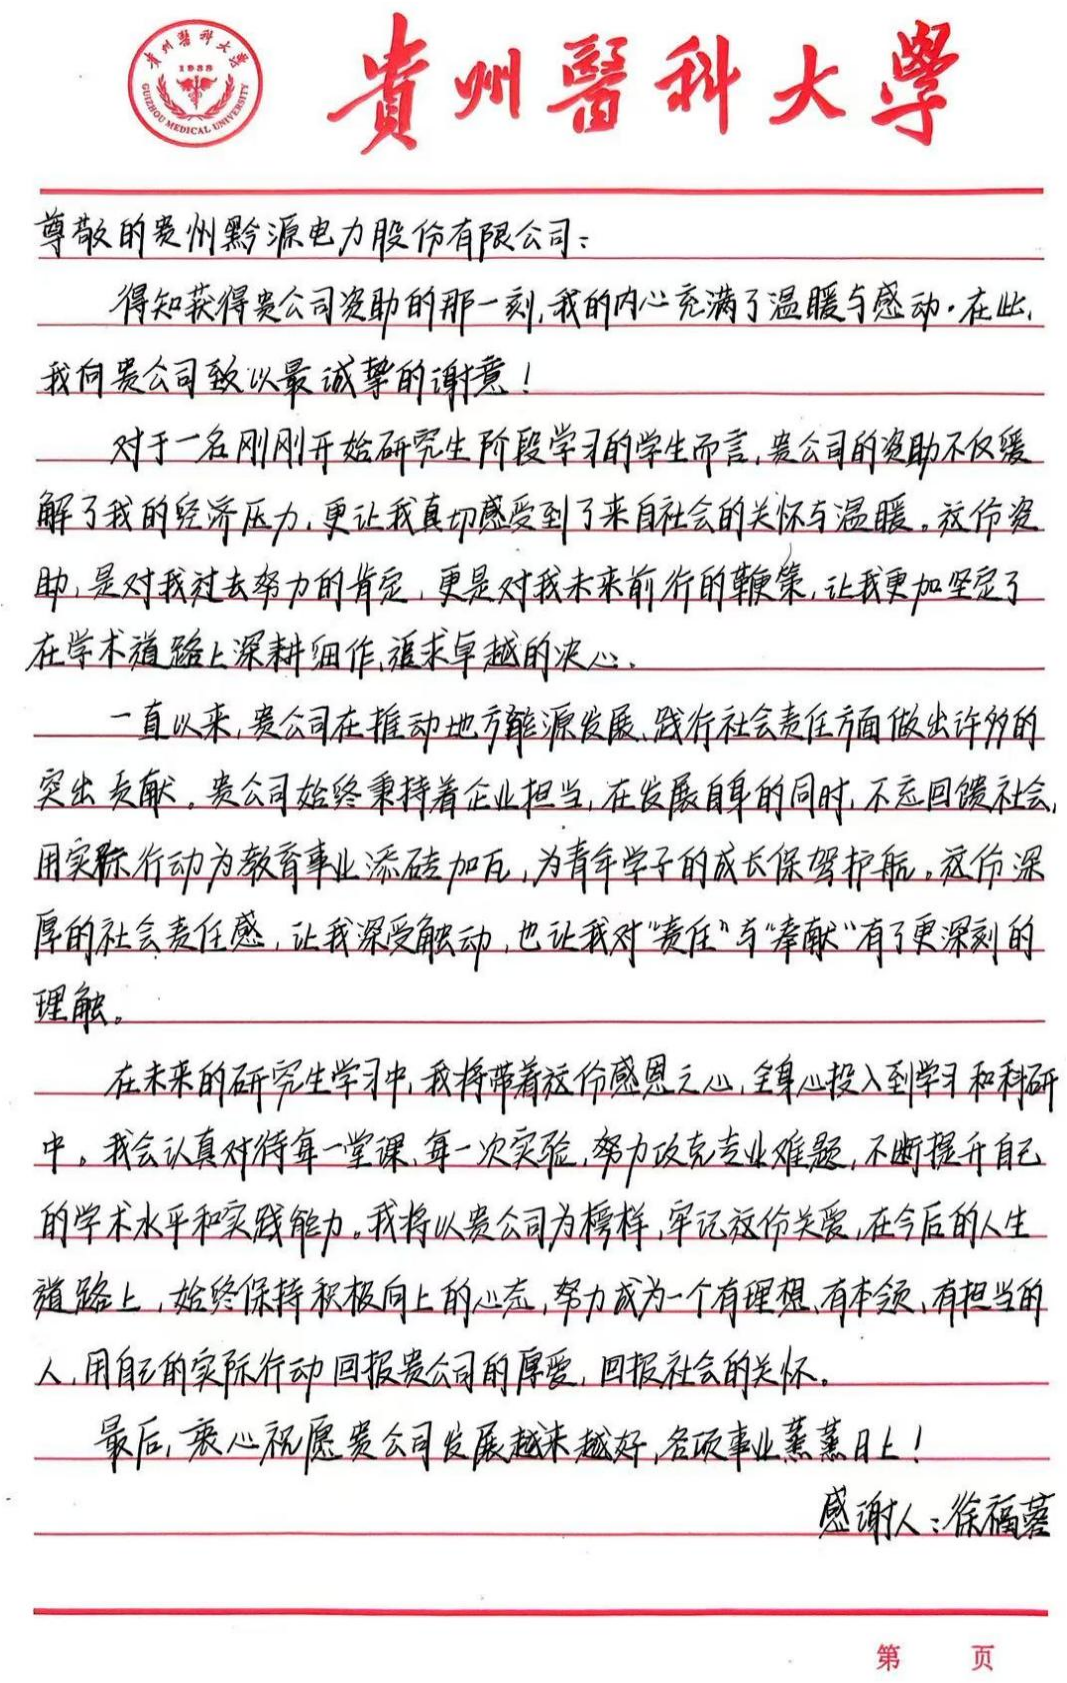 貴州醫科大學
1938
GUIZHOU MEDICAL UNIVERSITY
貴州醫科大學
尊敬的贵州黔源电力股份有限公司：
得知获得贵公司资助的那一刻，我的内心充满了温暖与感动。在此，
我向贵公司致以最诚挚的谢意！
对于一名刚刚开始研究生阶段学习的学生而言，贵公司的资助不仅缓
解了我的经济压力，更让我真切感受到了来自社会的关怀与温暖。这份资
助，是对我过去努力的肯定，更是对我未来前行的鞭策，让我更加坚定了
在学术道路上深耕细作、追求卓越的决心。
一直以来，贵公司在推动地方能源发展、践行社会责任方面做出许多的
突出贡献。贵公司始终秉持着企业担当，在发展自身的同时，不忘回馈社会，
用实际行动为教育事业添砖加瓦，为青年学子的成长保驾护航。这份深
厚的社会责任感，让我深受触动，也让我对“责任”与“奉献”有了更深刻的
理触。
在未来的研究生学习中，我将带着这份感恩之心，全身心投入到学习和科研
中。我会认真对待每一堂课、每一次实验，努力攻克专业难题，不断提升自己
的学术水平和实践能力。我将以贵公司为榜样，牢记这份关爱，在今后的人生
道路上，始终保持积极向上的心态，努力成为一个有理想、有本领、有担当的
人，用自己的实际行动回报贵公司的厚爱，回报社会的关怀。
最后，衷心祝愿贵公司发展越来越好，各项事业蒸蒸日上！
感谢人：徐福蓉
第 页